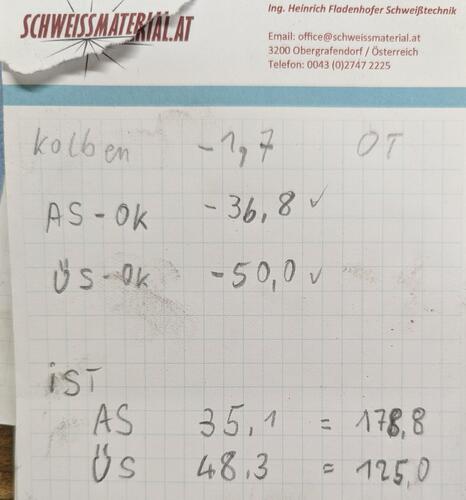 SCHWEISSMATERIAL.AT
Ing. Heinrich Fladenhofer Schweißtechnik
Email: office@schweissmaterial.at
3200 Obergrafendorf / Österreich
Telefon: 0043 (0)2747 2225
Kolben -1,7 OT
AS-OK -36,8 ✓
ÜS-OK -50,0 ✓
iST
AS 35,1 = 178,8
ÜS 48,3 = 125,0